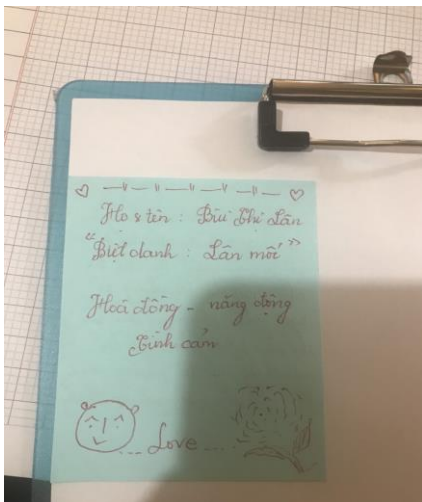 Họ & tên : Bùi Thị Lân
"Biệt danh : Lân mối"
Hoà đồng - năng động
Tình cảm
... Love ...